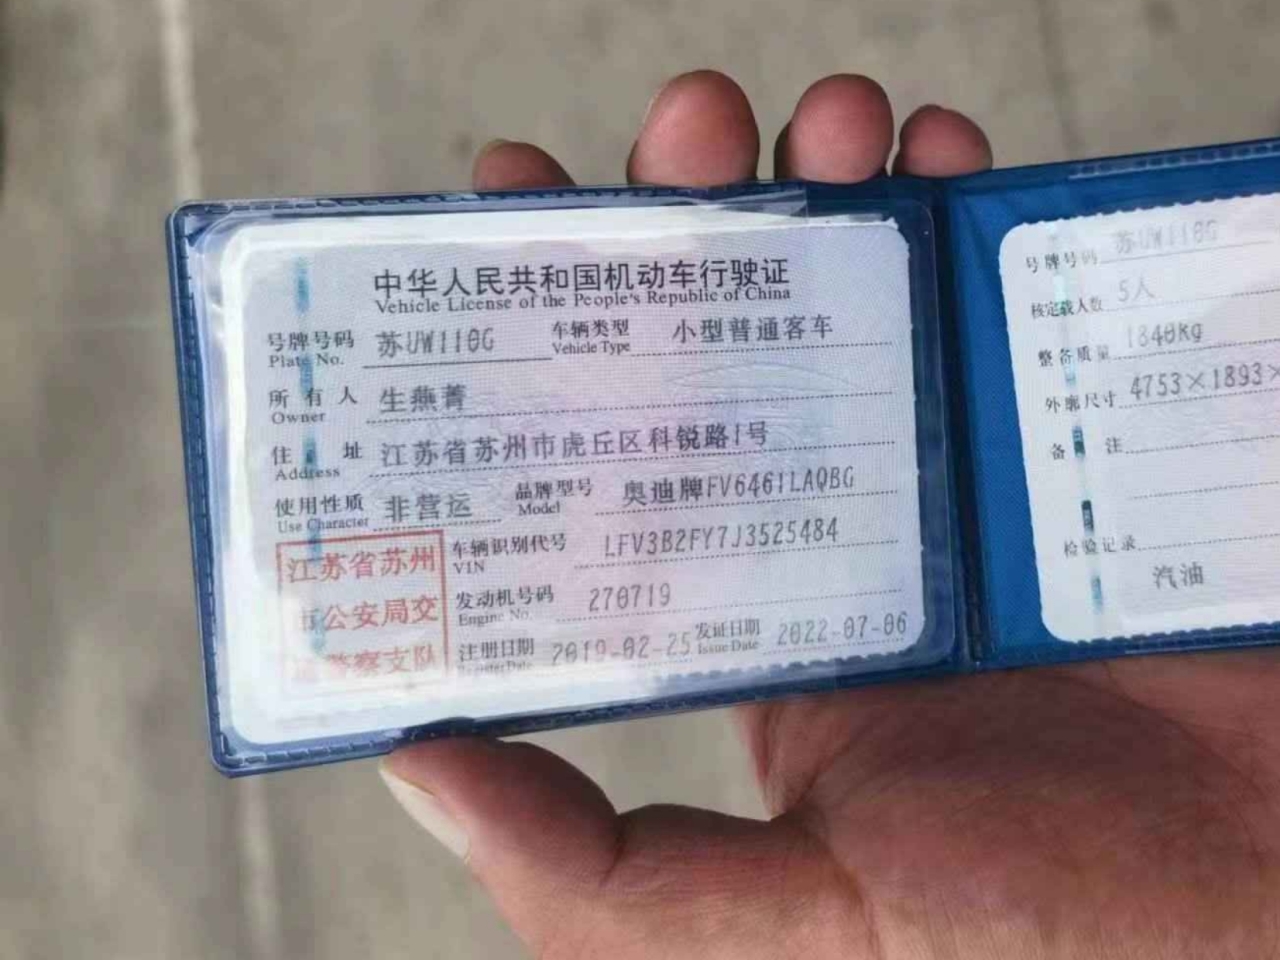 中华人民共和国机动车行驶证
Vehicle License of the People's Republic of China
号牌号码 苏UW110G 车辆类型 小型普通客车
Plate No. Vehicle Type
所有人 生燕菁
Owner
住址 江苏省苏州市虎丘区科锐路1号
Address
使用性质 非营运 品牌型号 奥迪牌FV6461LAQBG
Use Character Model
车辆识别代号 LFV3B2FY7J3525484
VIN
发动机号码 270719
Engine No.
注册日期 2019-02-25 发证日期 2022-07-06
Register Date Issue Date
江苏省苏州
市公安局交
警察支队
号牌号码 苏UW110G
核定载人数 5人
整备质量 1840kg
外廓尺寸 4753×1893×
备注
检验记录
汽油